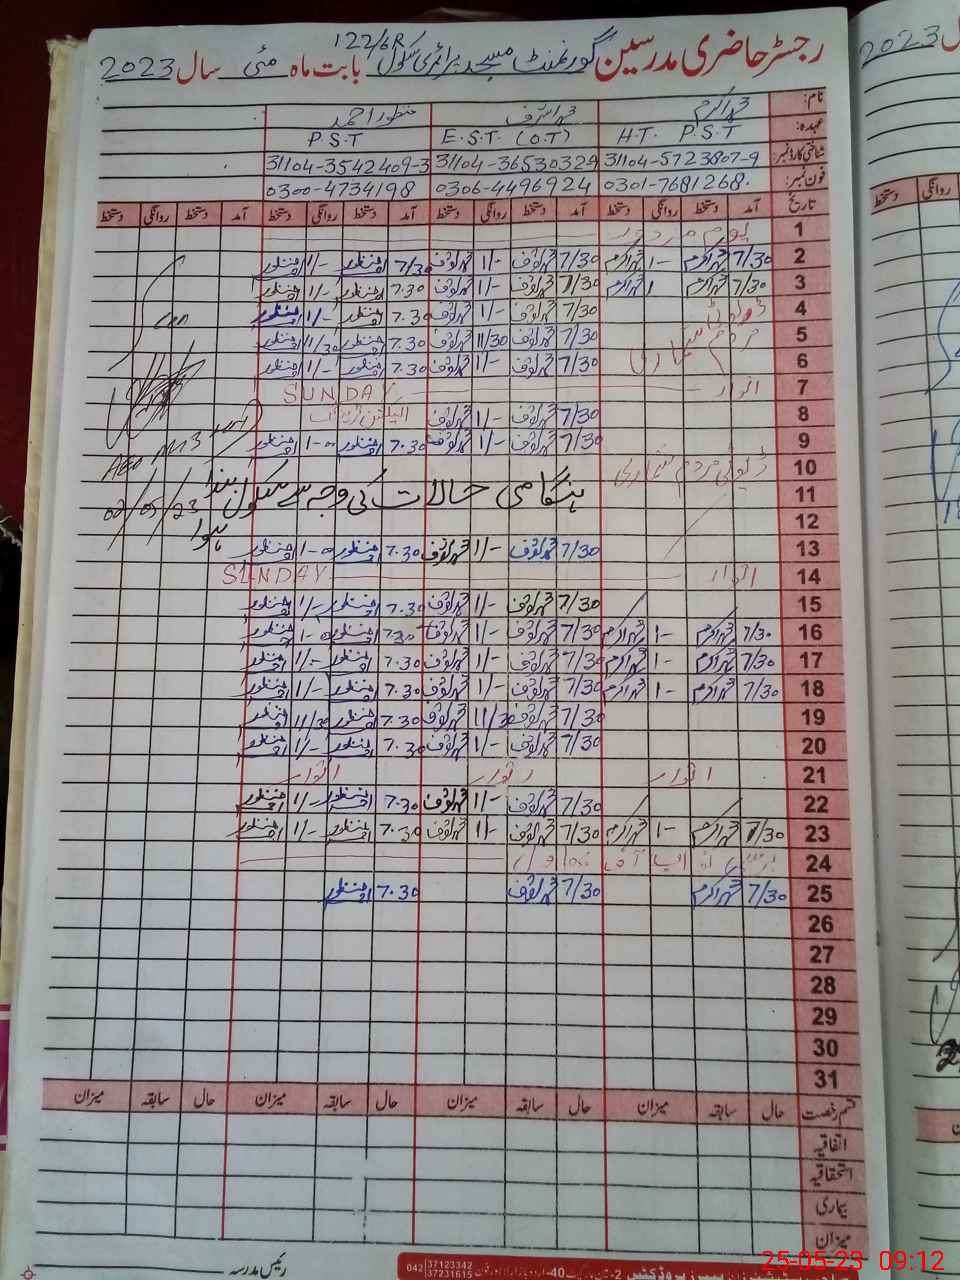 رجسٹر حاضری مدرسین گورنمنٹ مسجد پرائمری سکول 122/6R بابت ماہ مئی سال 2023
نام: محمد اکرم محمد اشرف منظور احمد
عہدہ: H.T. P.S.T E.S.T (O.T) P.S.T
شناختی کارڈ نمبر: 31104-5723807-9 31104-3653032 31104-3542409-3
فون نمبر: 0301-7681268 0306-4496924 0300-4734198
تاریخ آمد دستخط روانگی دستخط آمد دستخط روانگی دستخط آمد دستخط روانگی دستخط آمد دستخط روانگی دستخط
1 یوم مزدور
2 7/30 محمد اکرم 1- محمد اکرم 7/30 محمد اشرف 1/- محمد اشرف 7/30 منظور احمد 1/- منظور احمد
3 7/30 محمد اکرم 1 محمد اکرم 7/30 محمد اشرف 1/- محمد اشرف 7.30 منظور احمد 1/- منظور احمد
4 ڈیوٹی 7/30 محمد اشرف 1/- محمد اشرف 7.30 منظور احمد 1/- منظور احمد
5 مردم شماری 7/30 محمد اشرف 11/30 محمد اشرف 7.30 منظور احمد 11/30 منظور احمد
6 7/30 محمد اشرف 1/- محمد اشرف 7.30 منظور احمد 1/- منظور احمد
7 اتوار SUNDAY
8 7/30 محمد اشرف 1/- محمد اشرف الیکشن ٹریننگ
9 7/30 محمد اشرف 1/- محمد اشرف 7.30 منظور احمد 1-0 منظور احمد
10 ڈیوٹی مردم شماری
11 ہنگامی حالات کی وجہ سے سکول بند ہوا
02/05/23
12
13 7/30 محمد اشرف 1/- محمد اشرف 7.30 منظور احمد 1-0 منظور احمد
14 اتوار SUNDAY
15 7/30 محمد اشرف 1/- محمد اشرف 7.30 منظور احمد 1/- منظور احمد
16 7/30 محمد اکرم 1- محمد اکرم 7/30 محمد اشرف 1/- محمد اشرف 7.30 منظور احمد 1-0 منظور احمد
17 7/30 محمد اکرم 1- محمد اکرم 7/30 محمد اشرف 1/- محمد اشرف 7.30 منظور احمد 1/- منظور احمد
18 7/30 محمد اکرم 1- محمد اکرم 7/30 محمد اشرف 1/- محمد اشرف 7.30 منظور احمد 1/- منظور احمد
19 7/30 محمد اشرف 11/30 محمد اشرف 7.30 منظور احمد 11/30 منظور احمد
20 7/30 محمد اشرف 1/- محمد اشرف 7.30 منظور احمد 1/- منظور احمد
21 اتوار اتوار اتوار
22 7/30 محمد اشرف 1/- محمد اشرف 7.30 منظور احمد 1/- منظور احمد
23 7/30 محمد اکرم 1- محمد اکرم 7/30 محمد اشرف 1/- محمد اشرف 7.30 منظور احمد 1/- منظور احمد
24
25 7/30 محمد اکرم 7/30 محمد اشرف 7.30 منظور احمد
26
27
28
29
30
31
قسم رخصت حال سابقہ میزان حال سابقہ میزان حال سابقہ میزان حال سابقہ میزان
اتفاقیہ
استحقاقیہ
بیماری
میزان
رئیس مدرسہ
042 37123342
37231615
25-05-23 09:12
2023